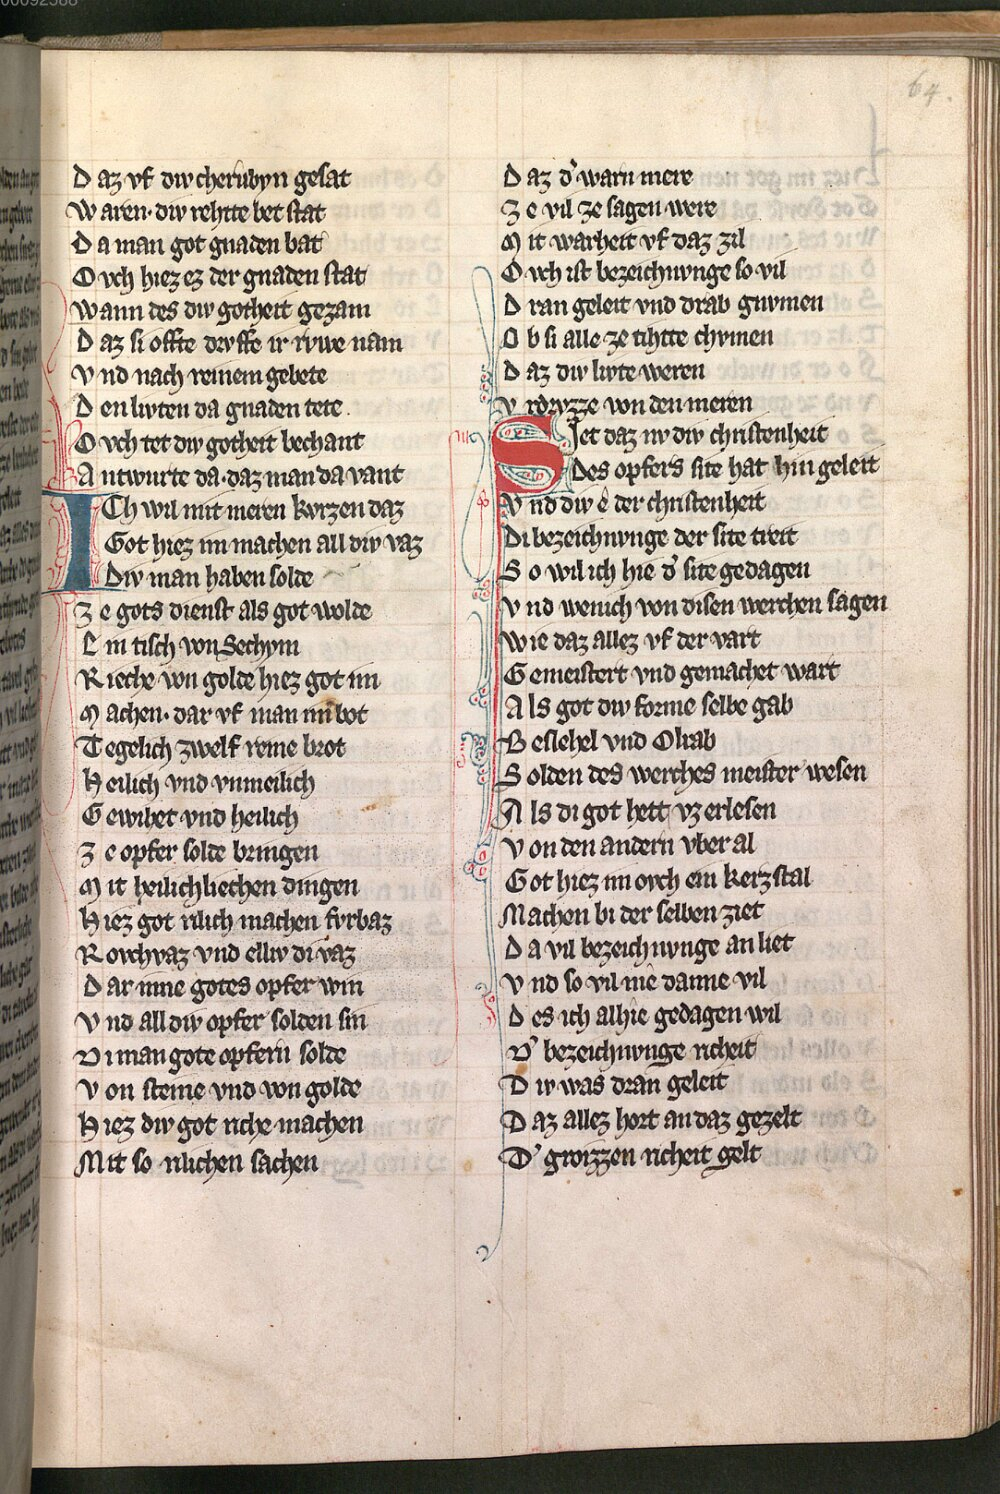 00092588
64.
Daz vf diw cherubyn gesat
Waren· diw rehtte bet stat
Da man got gnaden bat
Ovch hiez ez der gnaden stat
Wann des div gotheit gezam
Daz si offte dryffe ir rywe nam
Vnd nach reinem gebete
Den livten da gnaden tete
Ovch tet div gotheit bechant
Antwurte da· daz man da vant
ICh wil mit meren kvrzen daz
Got hiez im machen all div vaz
Div man haben solde
Ze gots dienst als got wolde
Ein tisch von Sechym
Rieche von golde hiez got im
Machen· dar vf man im bot
Tegelich zwelf reine brot
Heilich vnd vnmeilich
Gewihet vnd heilich
Ze opfer solde bringen
Mit heilichliechen dingen
Hiez got rilich machen fvrbaz
Rovchvaz vnd elliv di vaz
Dar inne gotes opfer win
Vnd all div opfer solden sin
Di man gote opfern solde
Von steine vnd von golde
Hiez div got riche machen
Mit so rilichen sachen
Daz d' warn mere
Ze vil ze sagen were
Mit warheit vf daz zil
Ovch ist bezeichnvnge so vil
Dran geleit vnd drab gnvmen
Ob si alle ze tihtte chvmen
Daz div livte weren
Vrdrvzze von den meren
Siet daz nv div christenheit
Des opfers site hat hin geleit
Vnd div ê der christenheit
Di bezeichnvnge der site treit
So wil ich hie d' site gedagen
Vnd wenich von disen werchen sagen
Wie daz allez vf der vart
Gemeistert vnd gemachet wart
Als got div forme selbe gab
Beslehel vnd Oliab
Solden des werches meister wesen
Als di got hett vz erlesen
Von den andern vber al
Got hiez im ovch ein kerzstal
Machen bi der selben ziet
Da vil bezeichnvnge an liet
Vnd so vil mê danne vil
Des ich alhie gedagen wil
D' bezeichnvnge richeit
Div was dran geleit
Daz allez hort an daz gezelt
D' groizzen richeit gelt